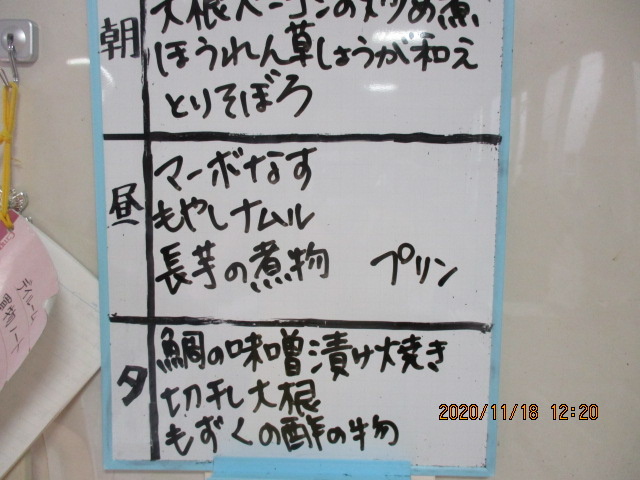 朝
大根ベーコンの炒め煮
ほうれん草しょうが和え
とりそぼろ
昼
マーボなす
もやしナムル
長芋の煮物 プリン
夕
鯛の味噌漬け焼き
切干し大根
もずくの酢の物
デイルーム
買物ノート
2020/11/18 12:20